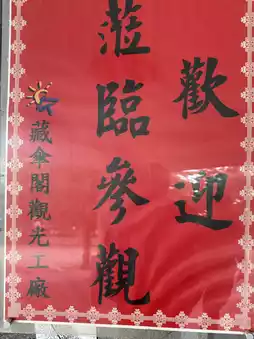 歡迎
蒞臨參觀
藏傘閣觀光工廠